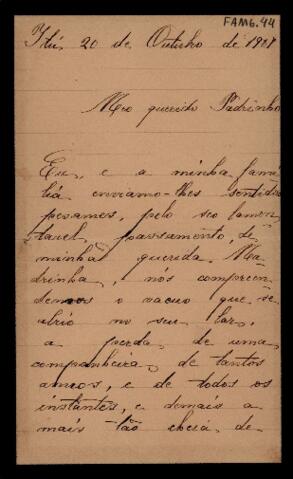 FAM6.44
Itú, 20 de Outubro de 1901
Meo querido Padrinho
Eu, e a minha fami
liá enviamo-lhes sentidos
pesames, pelo seo lamen
tavel, passamento, de
minha querida Ma
drinha, nós compreen
demos o vacuo que se
abrio no seu lar,
a perda, de uma
companheira, de tantos
annos, e de todos os
instantes, e demais a
mais tão cheia de